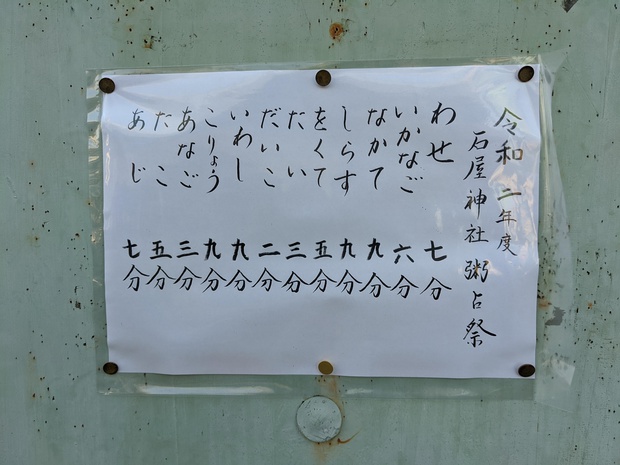 令和 二年度
石屋神社 粥占祭
わせ 七分
いかなご 六分
なかて 九分
しらす 九分
をくて 五分
たい 三分
だいこ 二分
いわし 九分
こりょう 九分
あなご 三分
たこ 五分
あじ 七分